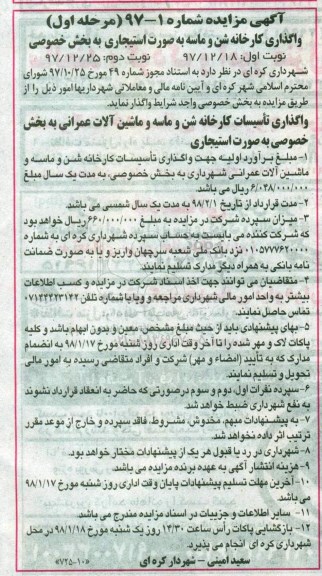 آگهی مزایده شماره ۱-۹۷ (مرحله اول)
واگذاری کارخانه شن و ماسه به صورت استیجاری به بخش خصوصی
نوبت اول: ۹۷/۱۲/۱۸ نوبت دوم: ۹۷/۱۲/۲۵
شهرداری کره ای در نظر دارد به استناد مجوز شماره ۴۹ مورخ ۹۷/۱۰/۲۵ شورای
محترم اسلامی شهر کره ای و آیین نامه مالی و معاملاتی شهرداریها امور ذیل را از
طریق مزایده به بخش خصوصی واجد شرایط واگذار نماید.
واگذاری تأسیسات کارخانه شن و ماسه و ماشین آلات عمرانی به بخش
خصوصی به صورت استیجاری
۱- مبلغ برآورد اولیه جهت واگذاری تأسیسات کارخانه شن و ماسه و
ماشین آلات عمرانی شهرداری به بخش خصوصی، به مدت یک سال مبلغ
۶/۰۲۸/۰۰۰/۰۰۰ ریال می باشد.
۲- مدت قرارداد از تاریخ ۹۸/۲/۱ به مدت یک سال شمسی می باشد.
۳- میزان سپرده شرکت در مزایده به مبلغ ۶۶۰/۰۰۰/۰۰۰ ریال خواهد بود
که شرکت کننده می بایست به حساب سپرده شهرداری کره ای به شماره
۰۱۰۵۷۷۶۲۰۰۰ نزد بانک ملی شعبه سرچهان واریز و یا به صورت ضمانت
نامه بانکی به همراه دیگر مدارک تسلیم نمایند.
۴- متقاضیان می توانند جهت اخذ اسناد شرکت در مزایده و کسب اطلاعات
بیشتر به واحد امور مالی شهرداری مراجعه و ویا با شماره تلفن ۰۷۱۴۴۴۲۳۱۴۲
تماس حاصل نمایند.
۵- بهای پیشنهادی باید از حیث مبلغ مشخص، معین و بدون ابهام باشد و کلیه
پاکات لاک و مهر شده را تا آخر وقت اداری روز شنبه مورخ ۹۸/۱/۱۷ به انضمام
مدارک که به تأیید (امضاء و مهر) شرکت و افراد متقاضی رسیده به امور مالی
تحویل و تسلیم نمایند.
۶- سپرده نفرات اول، دوم و سوم در صورتی که حاضر به انعقاد قرارداد نشوند
به نفع شهرداری ضبط خواهد شد.
۷- به پیشنهادات مبهم، مخدوش، مشروط، فاقد سپرده و خارج از موعد مقرر
ترتیب اثر داده نخواهد شد.
۸- شهرداری در رد یا قبول هر یک از پیشنهادات مختار خواهد بود.
۹- هزینه انتشار آگهی به عهده برنده مزایده می باشد.
۱۰- آخرین مهلت تسلیم پیشنهادات پایان وقت اداری روز شنبه مورخ ۹۸/۱/۱۷
می باشد.
۱۱- سایر اطلاعات و جزییات در اسناد مزایده مندرج می باشد.
۱۲- بازگشایی پاکات رأس ساعت ۱۳/۳۰ روز یک شنبه مورخ ۹۸/۱/۱۸ در محل
شهرداری کره ای انجام می پذیرد.
سعید امینی - شهردار کره ای «۷۲۵-۱۰»